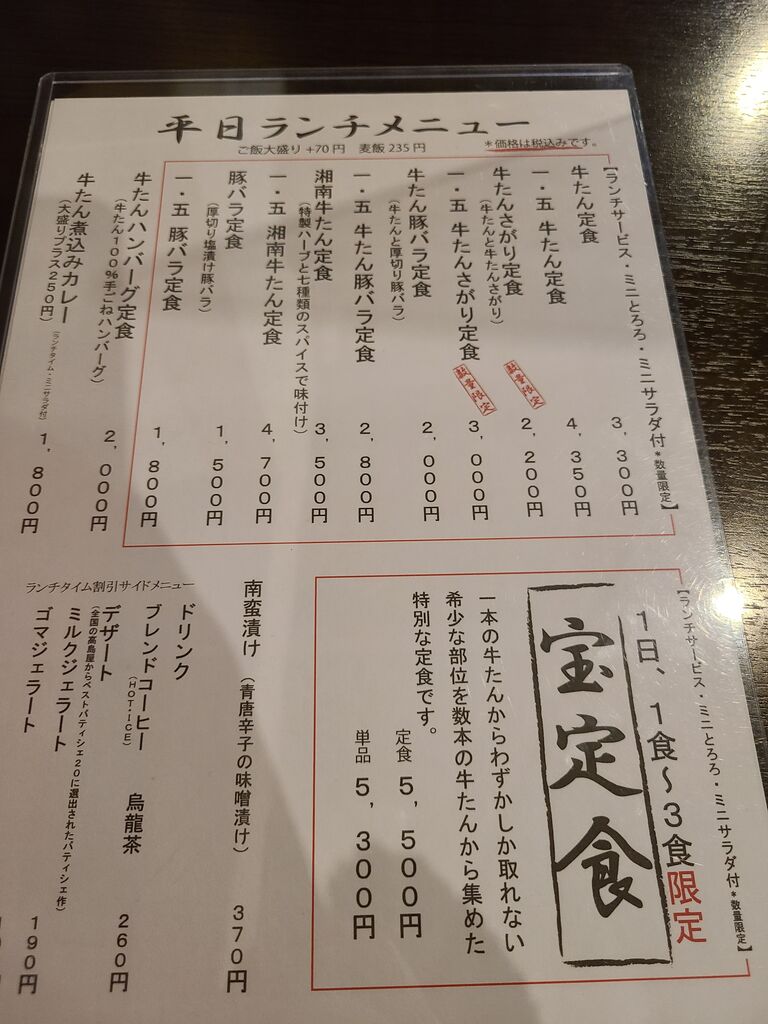 平日ランチメニュー
ご飯大盛り+70円　麦飯235円
*価格は税込みです。
【ランチサービス・ミニとろろ・ミニサラダ付*数量限定】
牛たん定食　3,300円
一・五 牛たん定食　4,350円
牛たんさがり定食　数量限定　2,200円
(牛たんと牛たんさがり)
一・五 牛たんさがり定食　数量限定　3,000円
牛たん豚バラ定食　2,000円
(牛たんと厚切り豚バラ)
一・五 牛たん豚バラ定食　2,800円
湘南牛たん定食　3,500円
(特製ハーブと七種類のスパイスで味付け)
一・五 湘南牛たん定食　4,700円
豚バラ定食　1,500円
(厚切り塩漬け豚バラ)
一・五 豚バラ定食　1,800円
牛たんハンバーグ定食　2,000円
(牛たん100%手ごねハンバーグ)
牛たん煮込みカレー　1,800円
(大盛りプラス250円)
(ランチタイム・ミニサラダ付)
【ランチサービス・ミニとろろ・ミニサラダ付*数量限定】
1日、1食～3食限定
宝定食
一本の牛たんからわずかしか取れない
希少な部位を数本の牛たんから集めた
特別な定食です。
定食　5,500円
単品　5,300円
南蛮漬け　(青唐辛子の味噌漬け)　370円
ランチタイム割引サイドメニュー
ドリンク
ブレンドコーヒー　烏龍茶　260円
(HOT・ICE)
デザート
(全国の高島屋からベストパティシェ20に選出されたパティシェ作)
ミルクジェラート
ゴマジェラート　190円